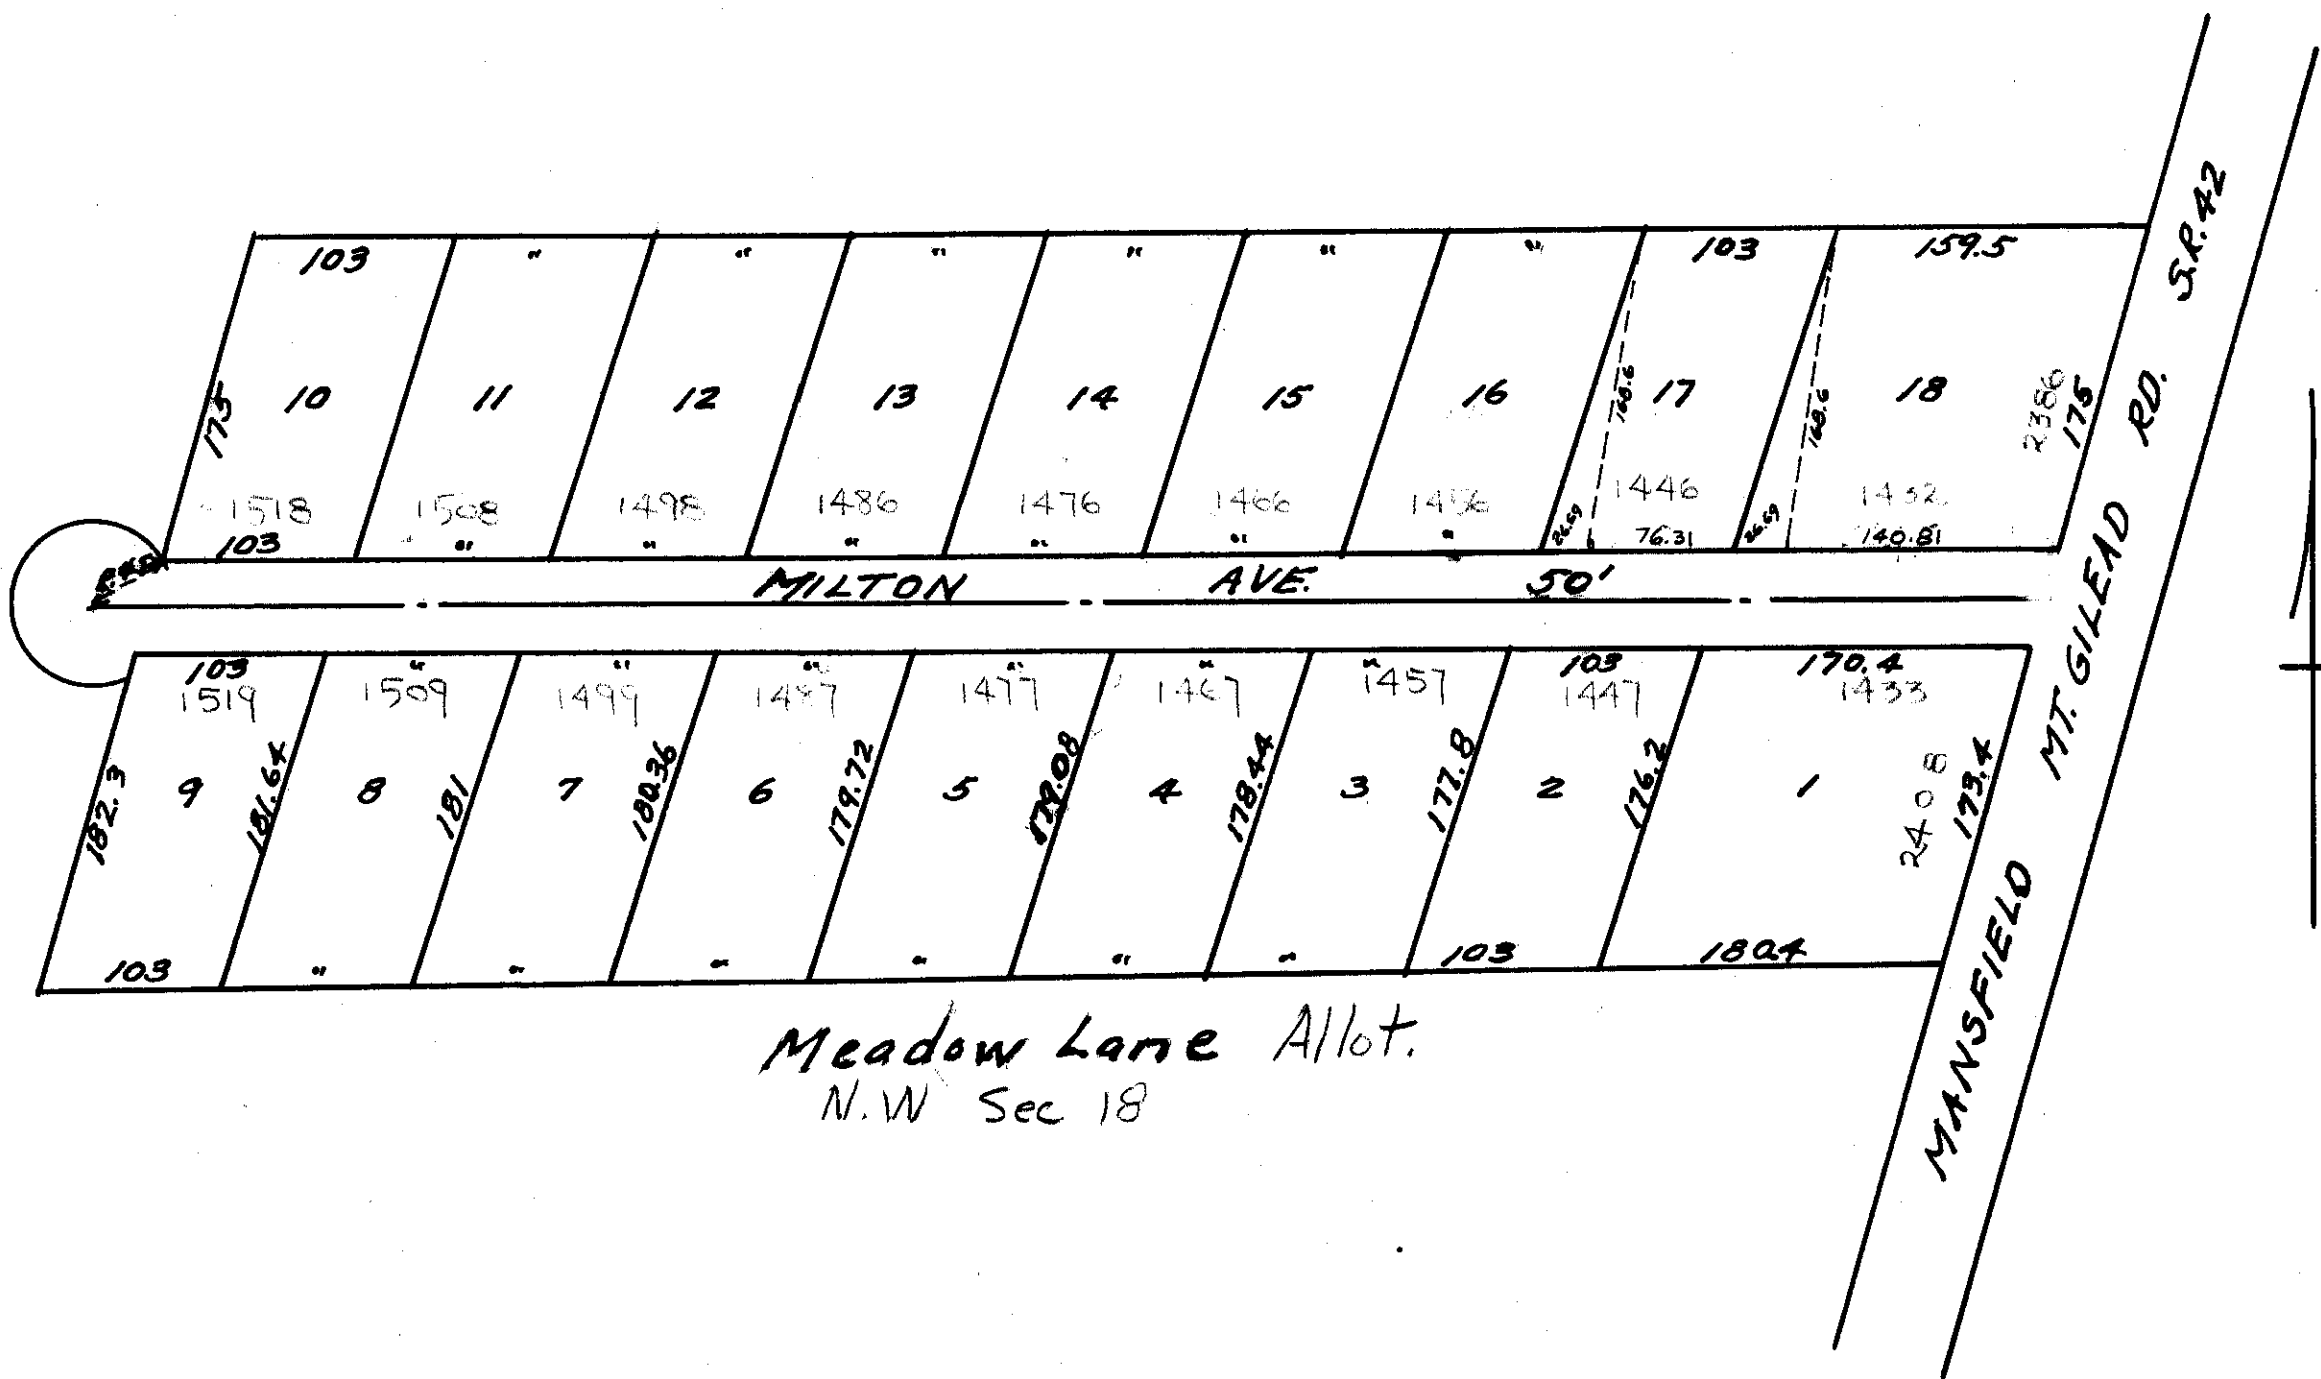 S.R. 42
103 " " " " " " 103 159.5
175 10 11 12 13 14 15 16 168.6 17 168.6 18 2386 175
RD.
1518 1508 1498 1486 1476 1466 1456 1446 1432
103 " " " " " " 26.69 76.31 26.69 140.81
MILTON AVE. 50'
MT. GILEAD
103 " " " " " " 103 170.4
1519 1509 1499 1487 1477 1467 1457 1447 1433
182.3 9 181.64 8 181 7 180.36 6 179.72 5 179.08 4 178.44 3 177.8 2 176.2 1 2408 173.4
103 " " " " " " 103 180.4
MANSFIELD
Meadow Lane Allot.
N.W Sec 18